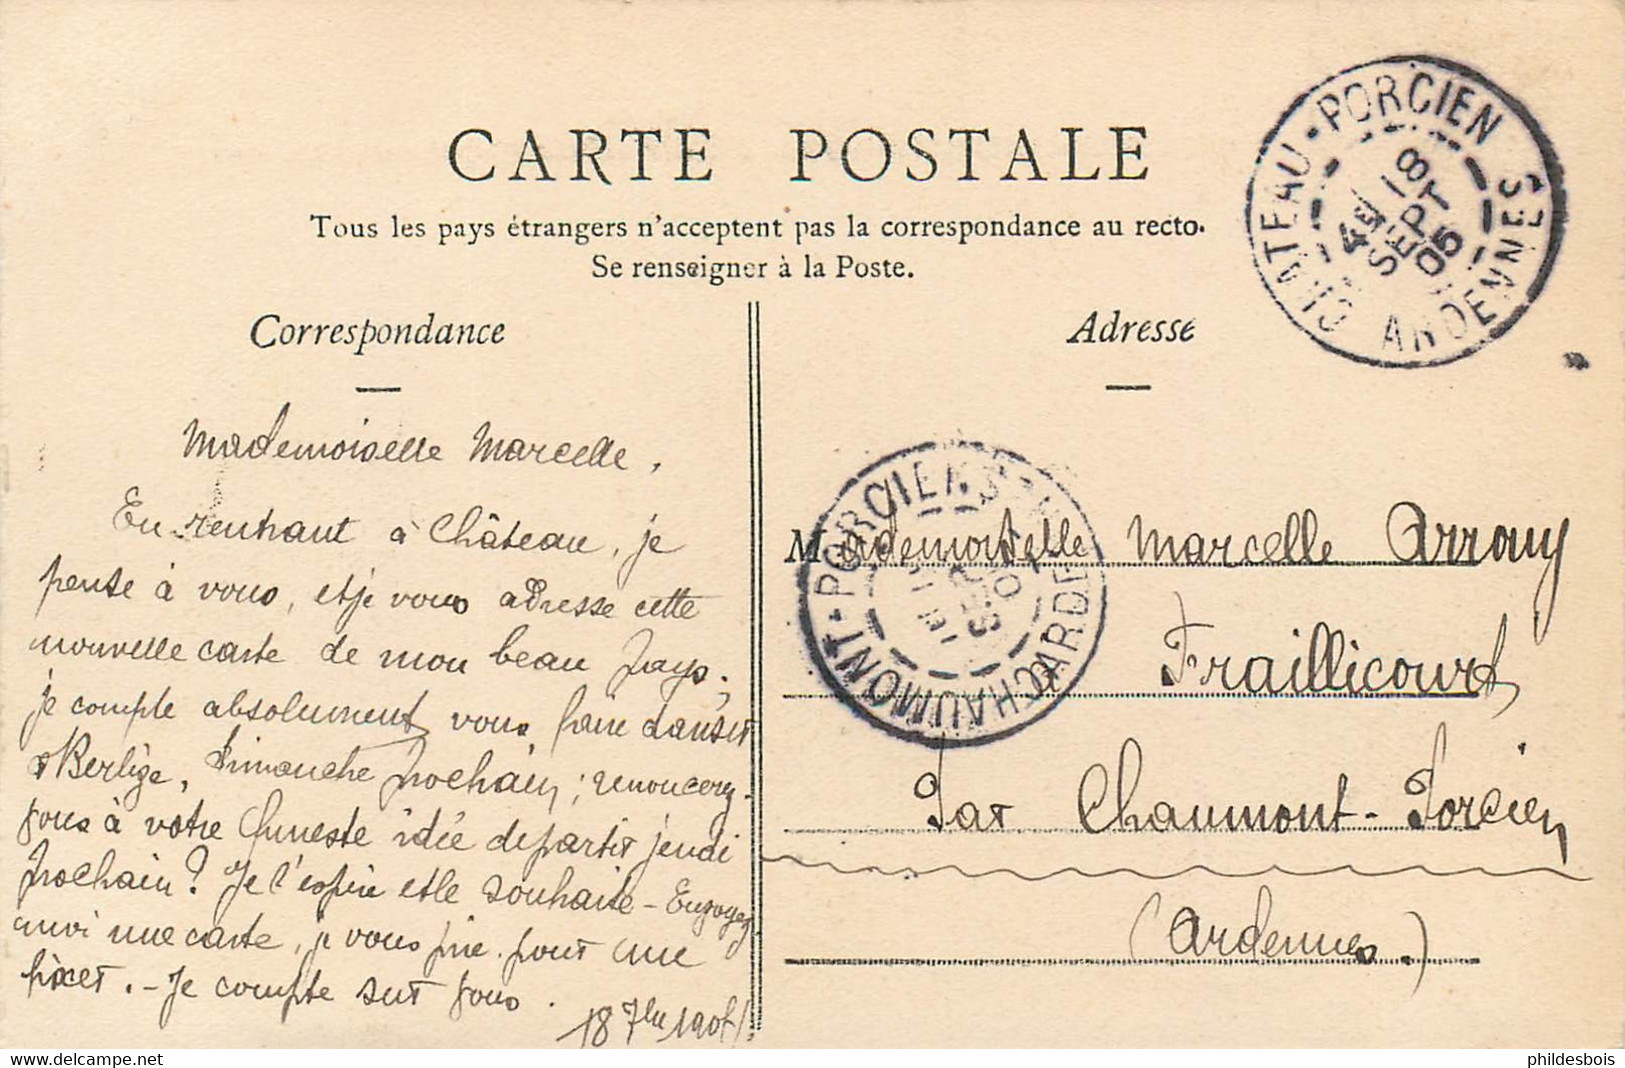 CARTE POSTALE
Tous les pays étrangers n'acceptent pas la correspondance au recto.
Se renseigner à la Poste.
Correspondance
Mademoiselle Marcelle,
En rentrant à Château, je
pense à vous, et je vous adresse cette
nouvelle carte de mon beau pays;
je compte absolument vous faire danser
à Berlize, Dimanche prochain; renoncerez-
vous à votre funeste idée de partir jeudi
prochain? Je l'espère et le souhaite - Envoyez
moi une carte, je vous prie, pour me
fixer. - Je compte sur vous.
18 7bre 1905
Adresse
Mademoiselle Marcelle Arrouy
Fraillicourt
Par Chaumont-Porcien
(Ardennes.)
CHATEAU-PORCIEN
4E 18
SEPT
05
ARDENNES
CHAUMONT-PORCIEN
ARDENNES
phildesbois